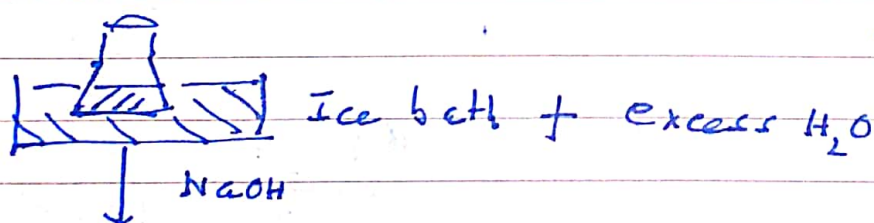 Ice bath + excess H₂O
NaOH